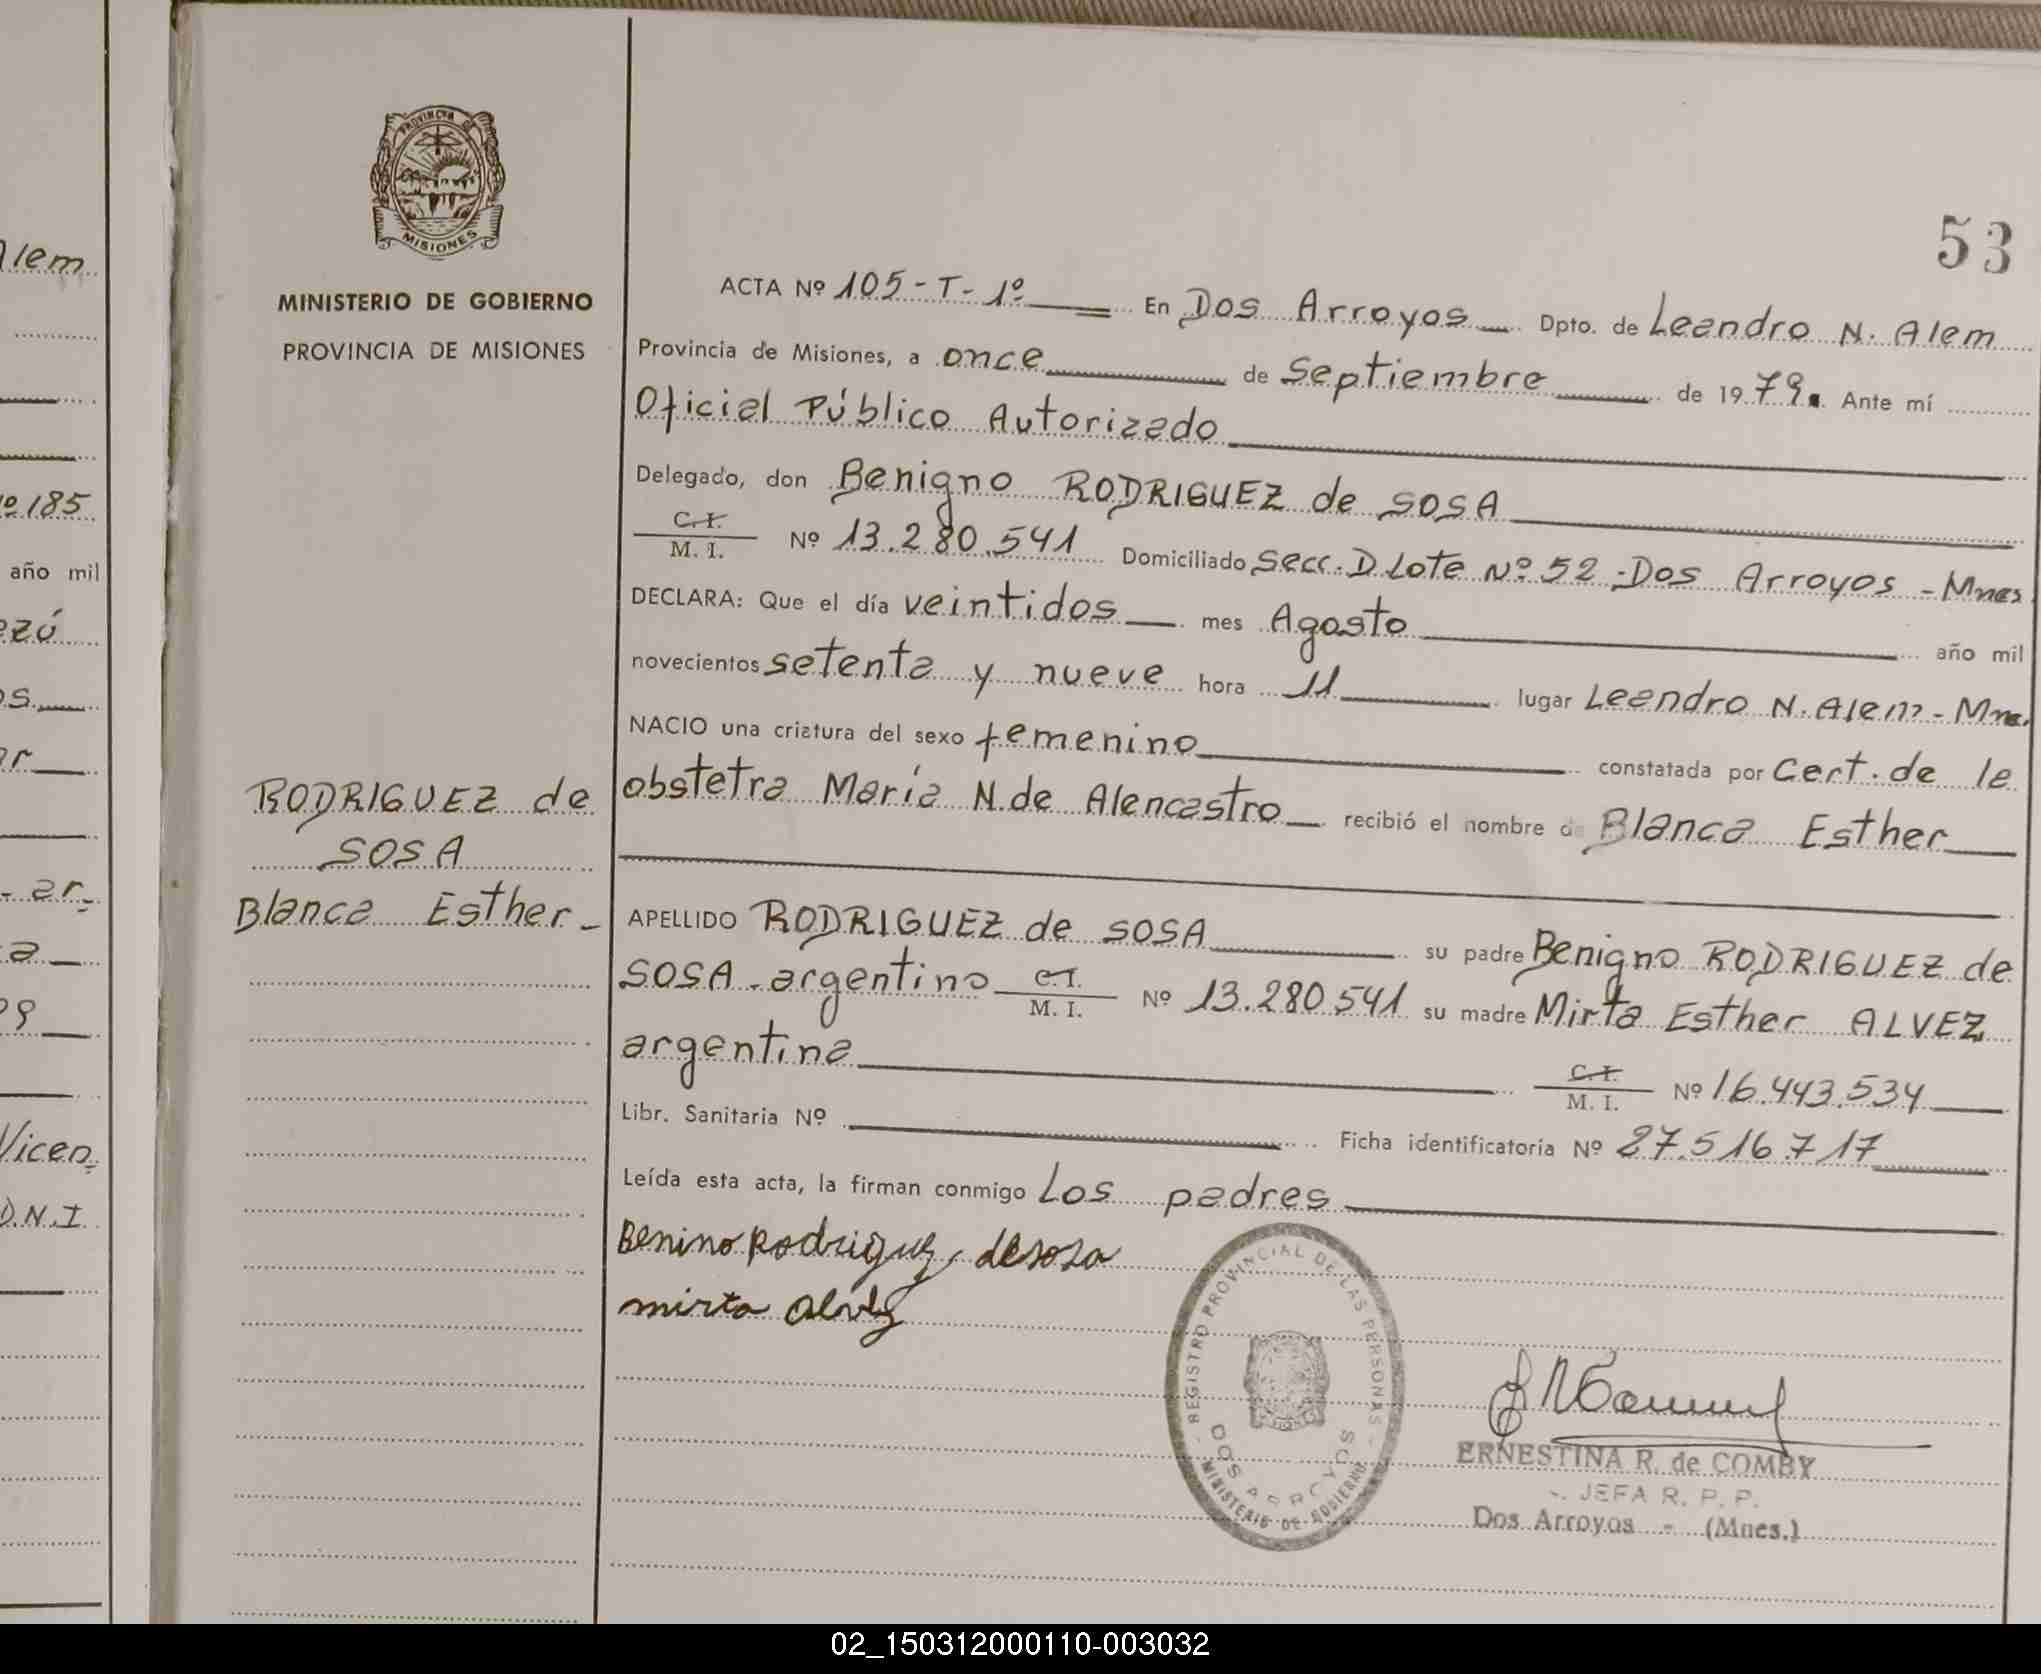 Alem
Nº 185
año mil
ezó
os.
or
- ar-
a
79
Vicen-
D.N.I.
PROVINCIA DE
MISIONES
MINISTERIO DE GOBIERNO
PROVINCIA DE MISIONES
RODRIGUEZ de
SOSA
Blanca Esther-
53
ACTA Nº 105-T-1º En Dos Arroyos Dpto. de Leandro N. Alem
Provincia de Misiones, a once de Septiembre de 1979. Ante mí
Oficial Público Autorizado
Delegado, don Benigno RODRIGUEZ de SOSA
C.I.
M. I. Nº 13.280.541 Domiciliado Secc. D Lote Nº 52-Dos Arroyos - Mnes.
DECLARA: Que el día veintidos mes Agosto año mil
novecientos setenta y nueve hora 11 lugar Leandro N. Alem - Mnes.
NACIO una criatura del sexo femenino constatada por Cert. de la
obstetra María N. de Alencastro recibió el nombre de Blanca Esther
APELLIDO RODRIGUEZ de SOSA su padre Benigno RODRIGUEZ de
SOSA - argentino C.I. M. I. Nº 13.280.541 su madre Mirta Esther ALVEZ
argentina C.I. M. I. Nº 16.443.534
Libr. Sanitaria Nº Ficha identificatoria Nº 27.516.717
Leída esta acta, la firman conmigo Los padres
Benino Rodriguez desosa
mirta alvez
REGISTRO PROVINCIAL DE LAS PERSONAS
DOS ARROYOS
MINISTERIO DE GOBIERNO
ERNESTINA R. de COMBY
JEFA R. P. P.
Dos Arroyos - (Mnes.)
02_150312000110-003032